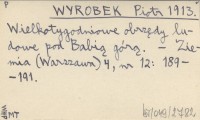 P
WYROBEK Piotr 1913.
Wielkotygodniowe obrzędy lu-
dowe pod Babią górą. - Zie-
mia (Warszawa) 4, nr 12: 189-
-191.
MT